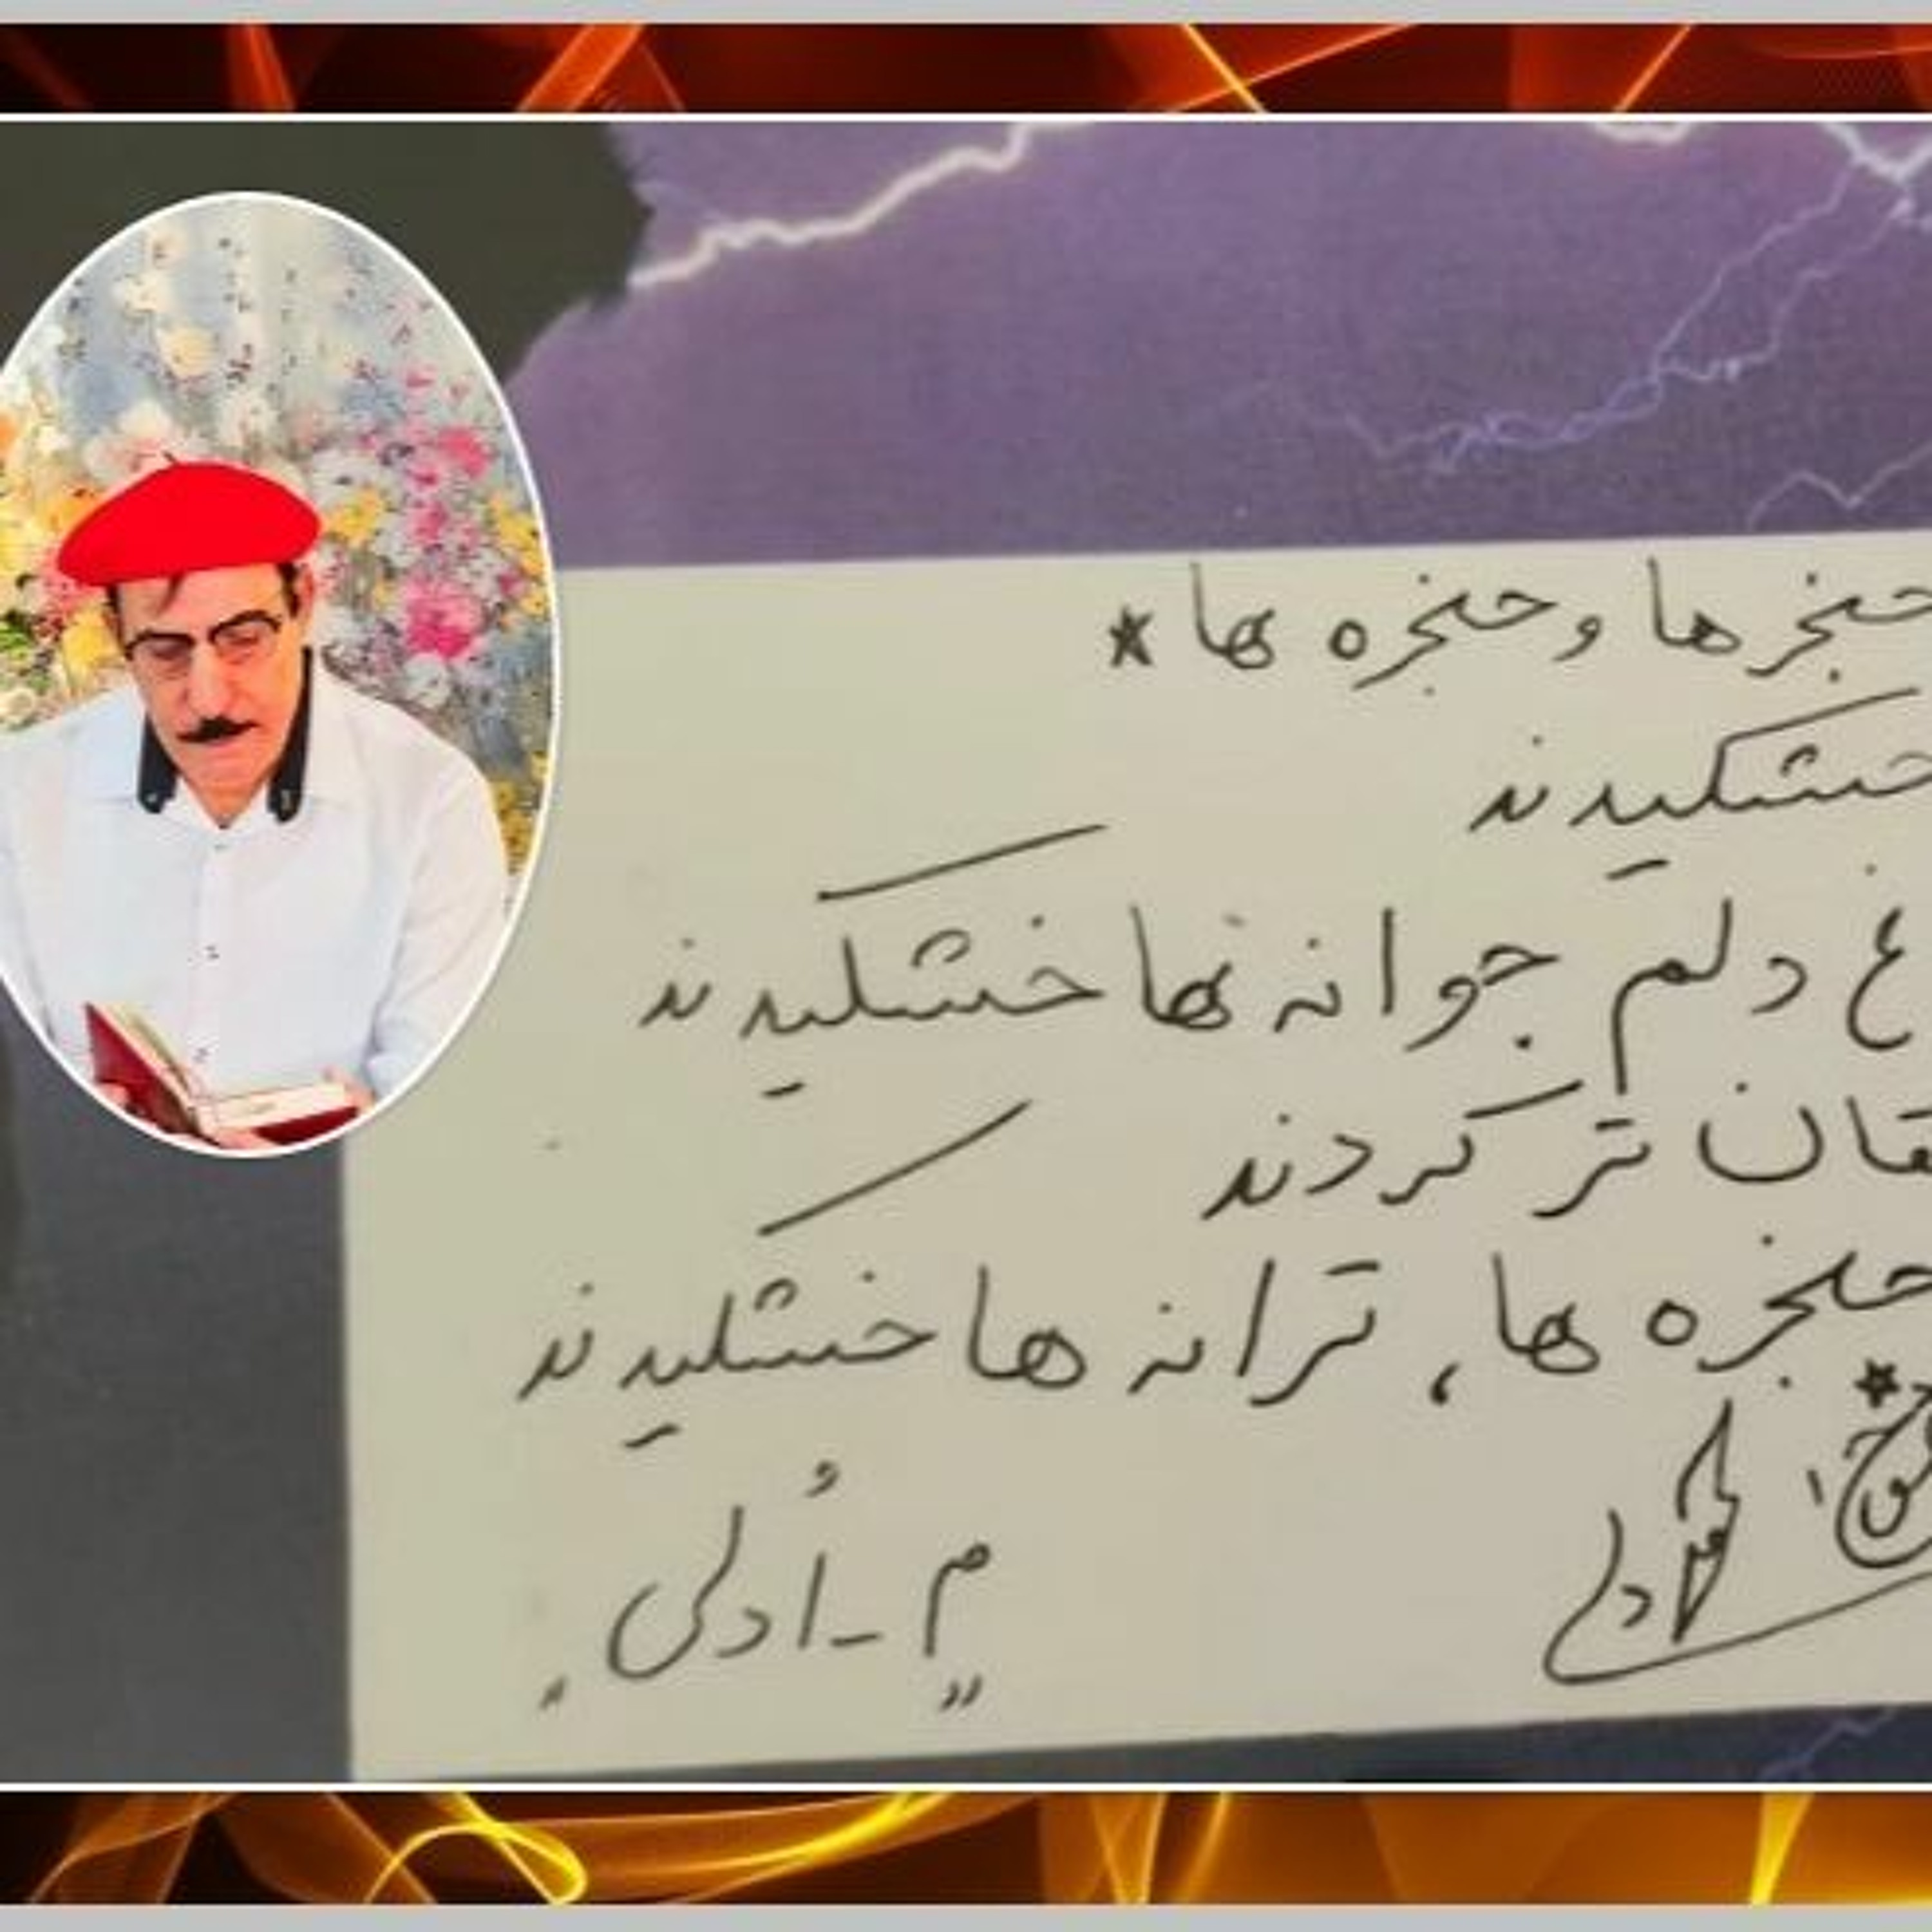 خنجرها و حنجره ها*
خشکیدند
غ دلم جوانه ها خشکیدند
قان تر کردند
حنجره ها، ترانه ها خشکیدند
م_اُدلی